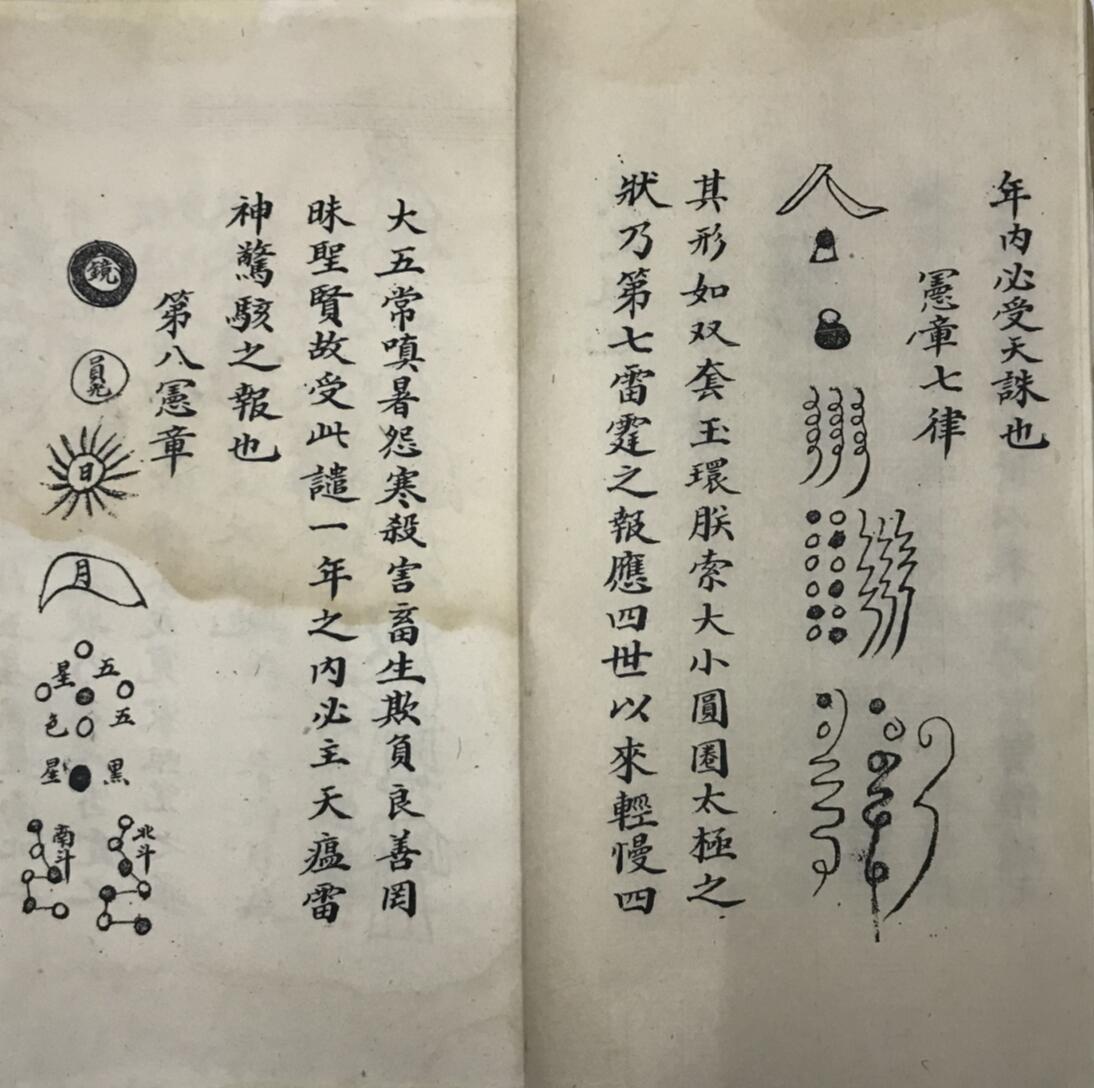 年内必受天誅也
憲章七律
其形如双套玉環朕索大小圓圈太極之
狀乃第七雷霆之報應四世以來輕慢四
大五常嗔暑怨寒殺害畜生欺負良善罔
昧聖賢故受此譴一年之内必主天瘟雷
神驚駭之報也
第八憲章
鏡
日
月
五五
星色
黑
星
北斗
南斗